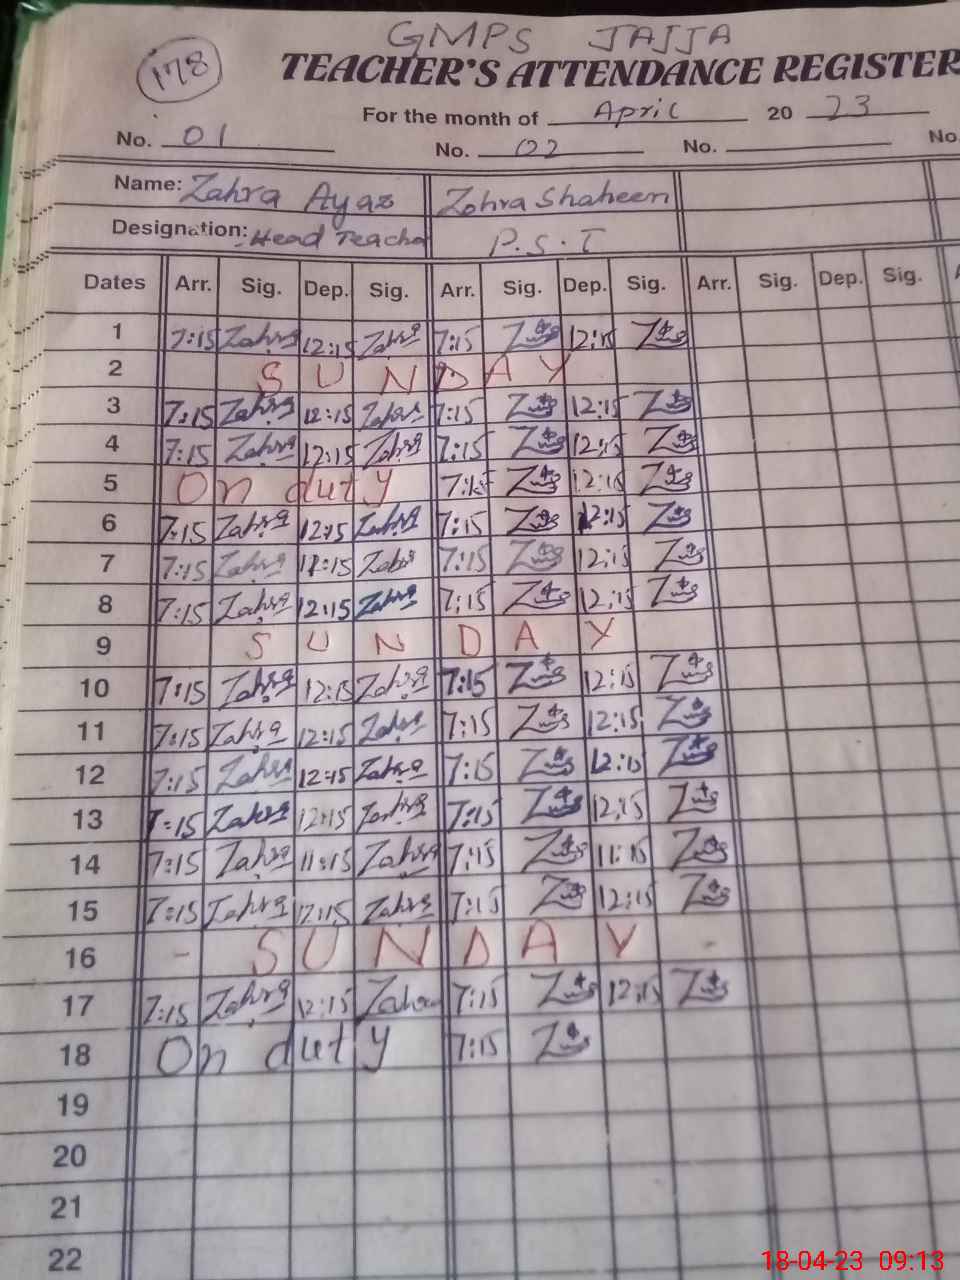 GMPS JAJJA
178
TEACHER'S ATTENDANCE REGISTER
For the month of April 20 23
No. 01 No. 02 No. No.
Name: Zahra Ayaz Zohra Shaheen
Designation: Head Teacher P.S.T
Dates Arr. Sig. Dep. Sig. Arr. Sig. Dep. Sig. Arr. Sig. Dep. Sig.
1 7:15 Zahra 12:15 Zahra 7:15 12:15
2 SUNDAY
3 7:15 Zahra 12:15 Zahra 7:15 12:15
4 7:15 Zahra 12:15 Zahra 7:15 12:15
5 On duty 7:15 12:15
6 7:15 Zahra 12:15 Zahra 7:15 12:15
7 7:15 Zahra 11:15 Zahra 7:15 12:15
8 7:15 Zahra 12:15 Zahra 7:15 12:15
9 SUNDAY
10 7:15 Zahra 12:15 Zahra 7:15 12:15
11 7:15 Zahra 12:15 Zahra 7:15 12:15
12 7:15 Zahra 12:15 Zahra 7:15 12:15
13 7:15 Zahra 12:15 Zahra 7:15 12:15
14 7:15 Zahra 11:15 Zahra 7:15 11:15
15 7:15 Zahra 12:15 Zahra 7:15 12:15
16 - SUNDAY -
17 7:15 Zahra 12:15 Zahra 7:15 12:15
18 On duty 7:15
19
20
21
22
18-04-23 09:13